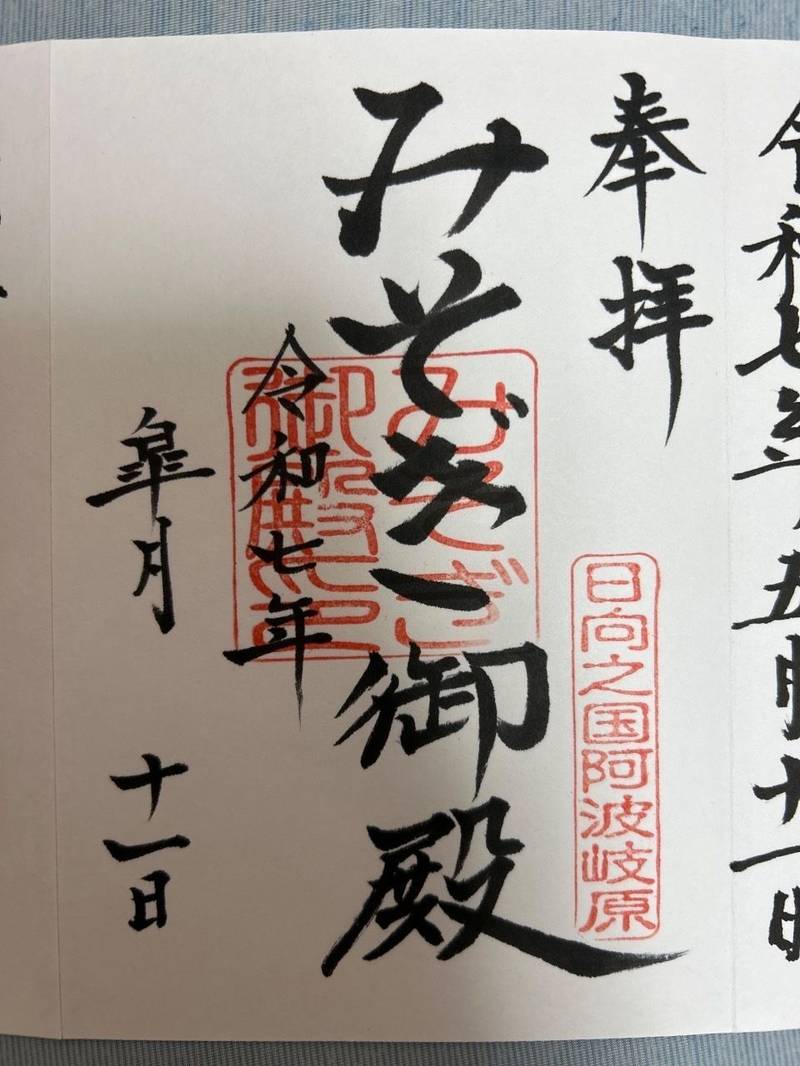 令和七年五月十一日
奉拝
日向之国阿波岐原
みそぎ御殿
みそぎ
御殿之印
令和七年
皐月 十一日